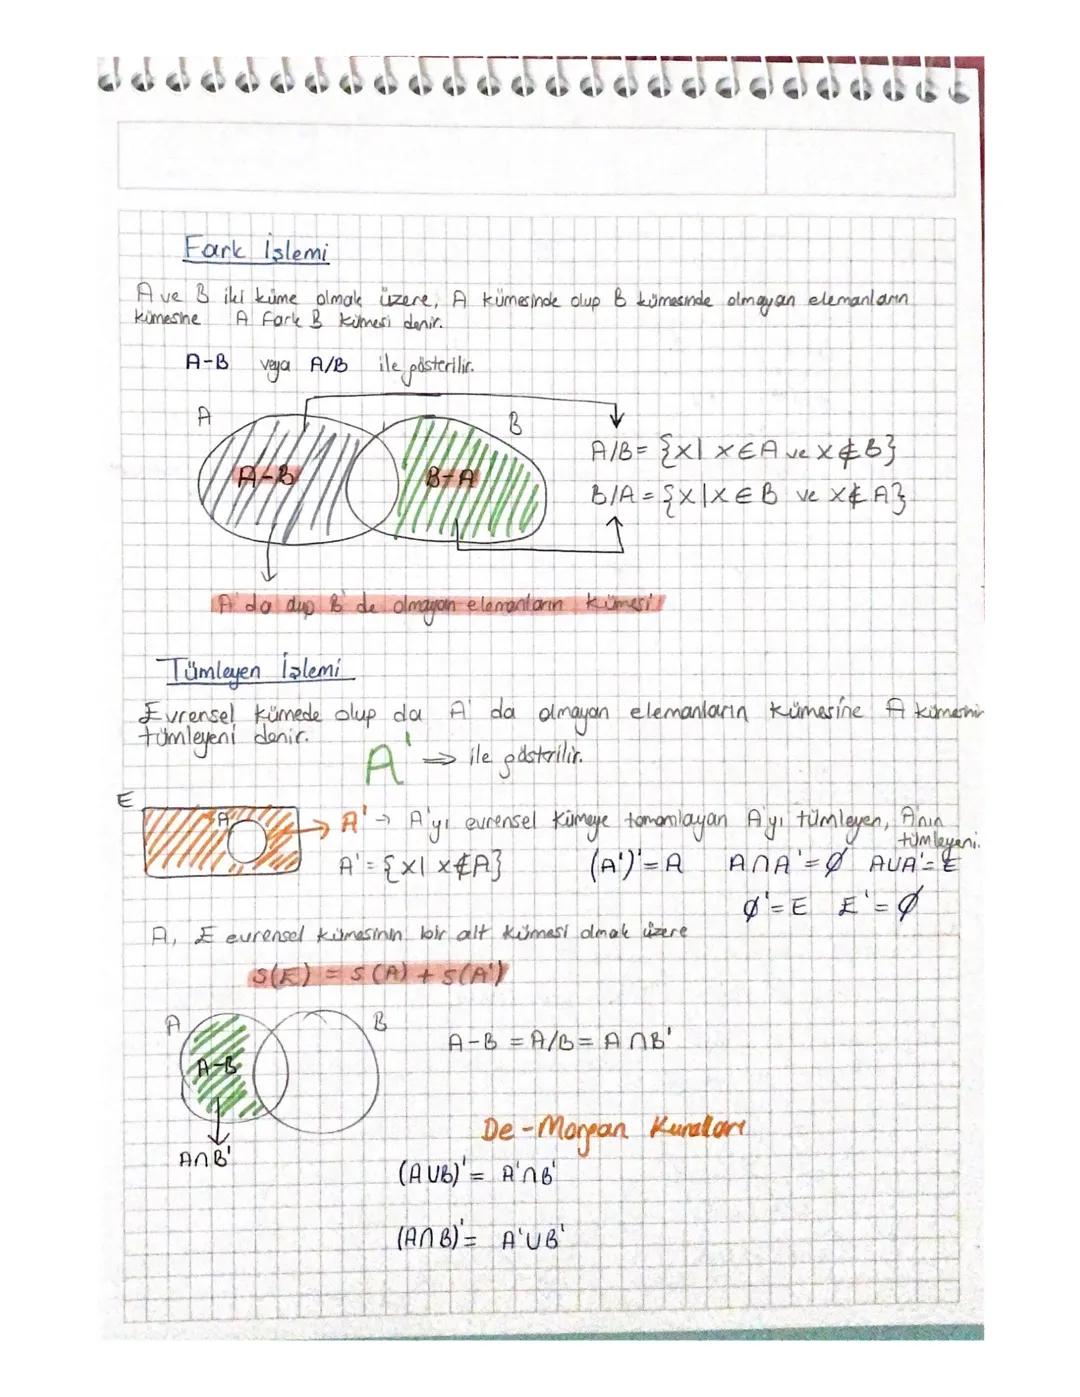 Fark İşlemi
A ve B iki küme olmak üzere, A kümesinde olup B kümesinde olmayan elemanların
kümesine A fark B kümesi denir.
A-B veya A/B ile gösterilir.
A
B
A-B
B-A
A/B= {x| x∈A ve x∉B}
B/A = {x|x∈B ve x∉A}
A'da olup B'de olmayan elemanların kümesi
Tümleyen İşlemi
Evrensel kümede olup da A'da olmayan elemanların kümesine A kümesinin
tümleyeni denir.
A' ⇒ ile gösterilir.
E
A
A' → A'yı evrensel kümeye tamamlayan A'yı tümleyen, A'nın
tümleyeni.
A' = {x| x∉A} (A')'=A A∩A'=∅ A∪A'=E
∅'=E E'=∅
A, E evrensel kümesinin bir alt kümesi olmak üzere
s(E) = s(A) + s(A')
A
B
A-B
A-B = A/B= A∩B'
A∩B'
De-Morgan Kuralları
(A∪B)'= A'∩B'
(A∩B)'= A'∪B'